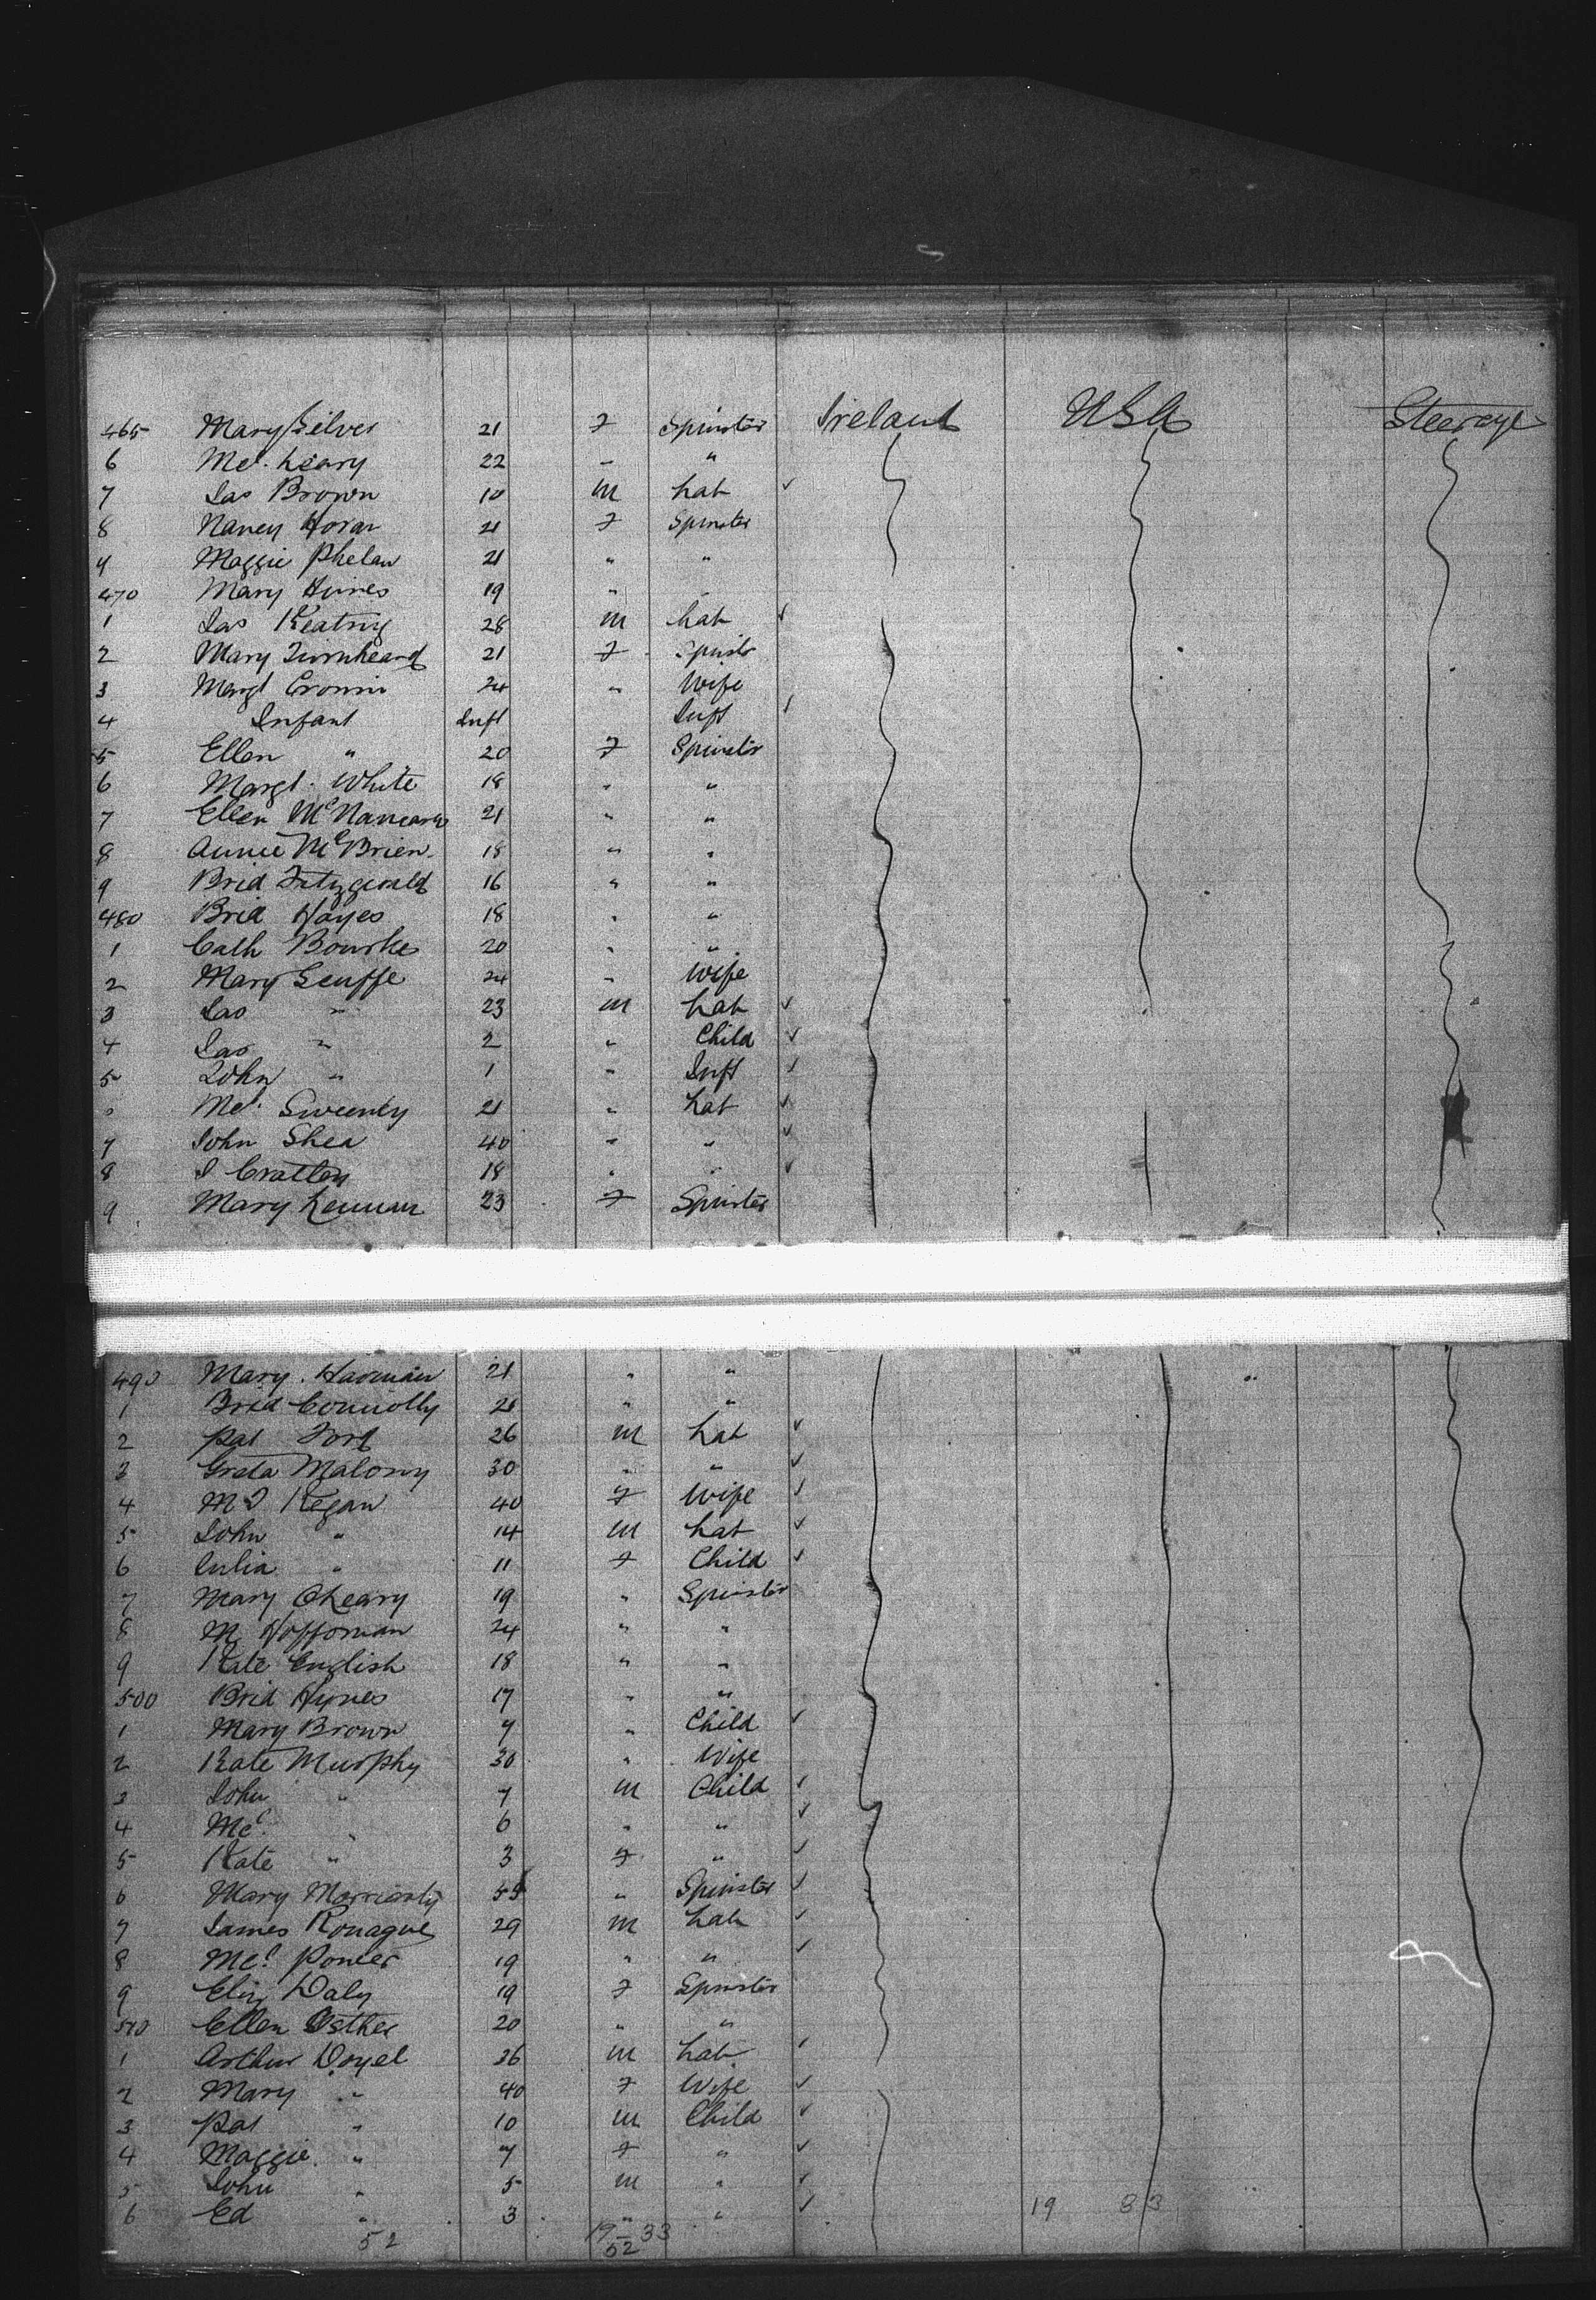 465 Mary Silver 21 F Spinster Ireland USA Steerage
6 Mcl. Leary 22 " "
7 Jas Brown 10 M Lab ✓
8 Nancy Horan 21 F Spinster
9 Maggie Phelan 21 " "
470 Mary Hines 19 " "
1 Jas Keating 28 M Lab ✓
2 Mary 21 F Spinstr
3 Margt Cronin 24 " Wife
4 Infant Inft Inft ✓
5 Ellen " 20 F Spinster
6 Margt. White 18 " "
7 Ellen McNamara 21 " "
8 Annie McBrien 18 " "
9 Brid Fitzgerald 16 " "
480 Brid Hayes 18 " "
1 Cath Bourke 20 " "
2 Mary 24 " Wife
3 Jas " 23 M Lab ✓
4 Jas " 2 " Child ✓
5 John " 1 " Inft ✓
Mcl. Sweeney 21 " Lab ✓
7 John Shea 40 " " ✓
8 J 18 " " ✓
9 Mary 23 F Spinster
490 Mary 21 " "
1 Brid Connolly 21 " "
2 Pat 26 M Lab ✓
3 Malony 30 " " ✓
4 Regan 40 F Wife ✓
5 John " 14 M Lab ✓
6 Julia " 11 F Child ✓
7 Mary OLeary 19 " Spinster
8 M 24 " "
9 Kate English 18 " "
500 Brid Hynes 17 " "
1 Mary Brown 7 " Child ✓
2 Kate Murphy 30 " Wife
3 John " 7 M Child ✓
4 Mcl. " 6 " " ✓
5 Kate " 3 F " ✓
6 Mary Morriarty " Spinster ✓
7 James Ronayne 29 M Lab ✓
8 Mcl. Power 19 " " ✓
9 Eliz Daly 19 F Spinster
510 Ellen Esther 20 " "
1 Arthur Doyel 36 M Lab ✓
2 Mary " 40 F Wife ✓
3 Pat " 10 M Child ✓
4 Maggie " 7 F " ✓
5 John " 5 M " ✓
6 Ed " 3 " " ✓ 19 83
52 19 33
52